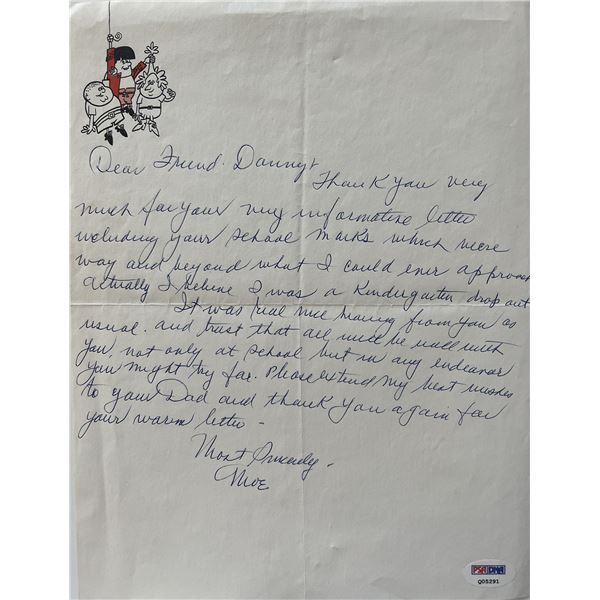 Dear Friend. Danny,
Thank you very
much for your very informative letter
including your school marks which were
way and beyond what I could ever approach
Actually I believe I was a Kindergarten drop out
It was real nice hearing from you as
usual. and trust that all will be well with
you, not only at school but in any endeavor
you might try for. Please extend my best wishes
to your Dad and thank you again for
your warm letter -
Most Sincerely -
Moe
PSA DNA
Q05291